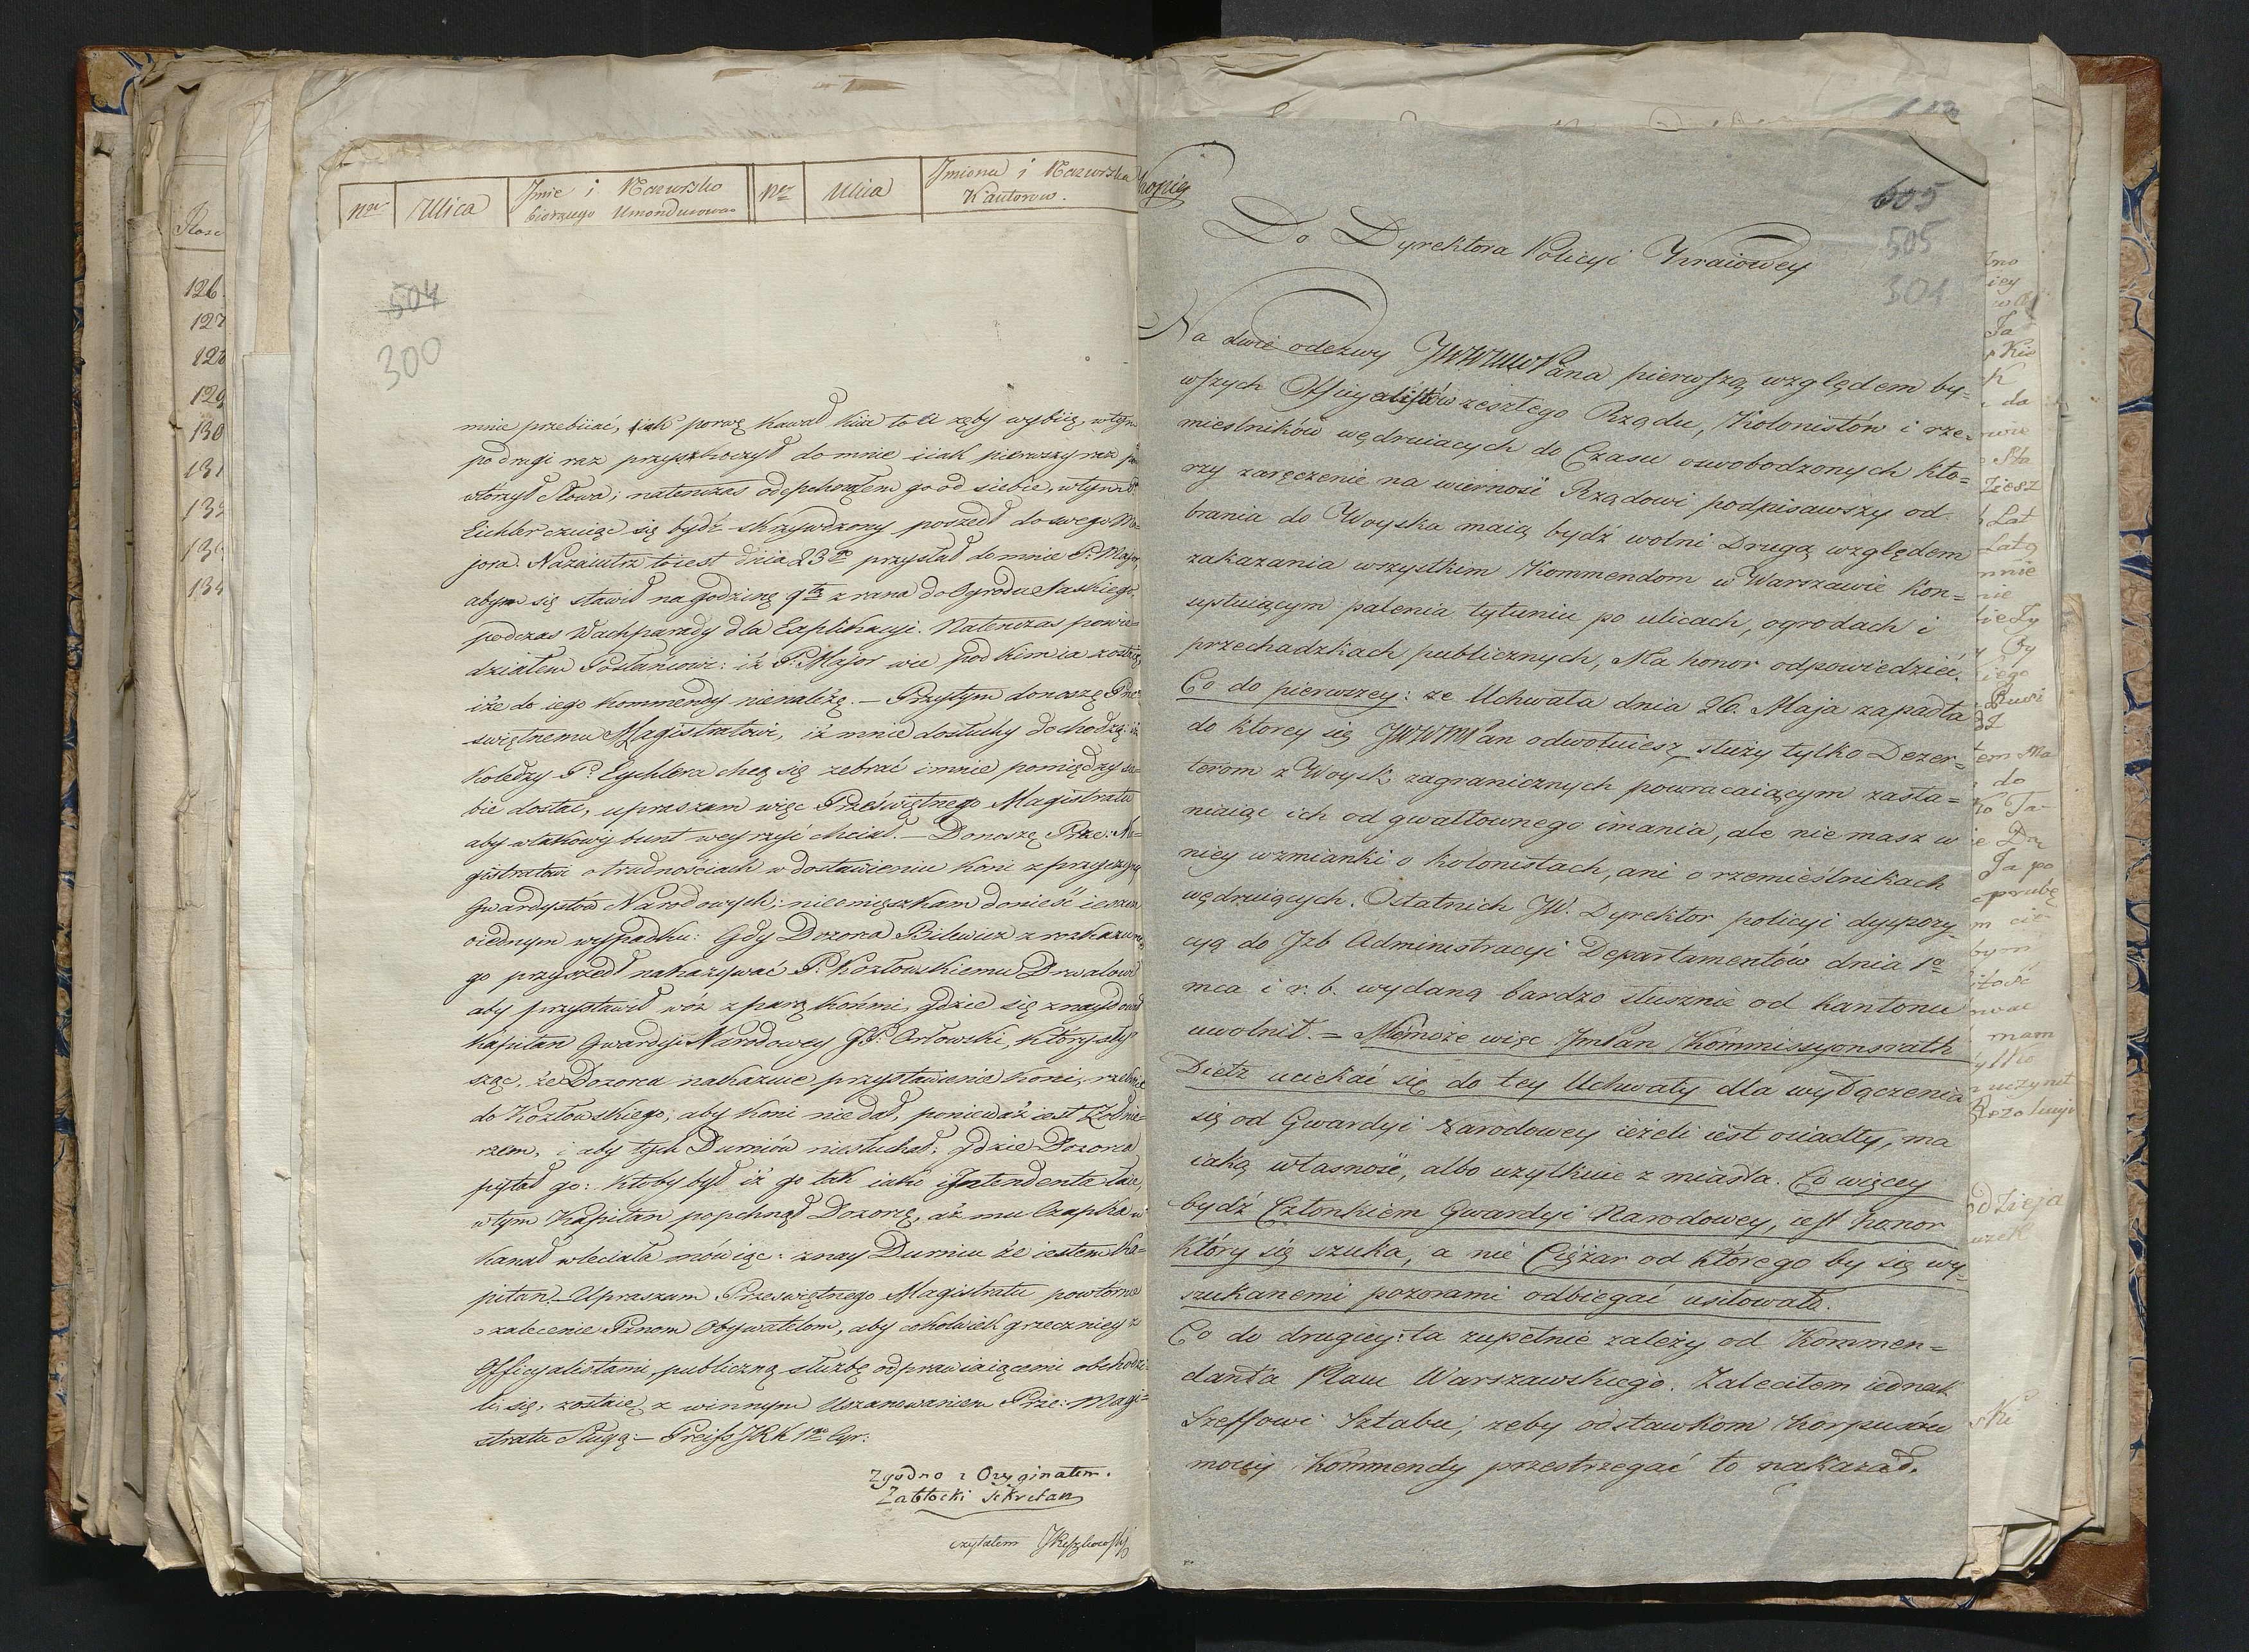 Nro
Ulica
Jmie i Nazwisko
biorącego Umondurowa
Nro
Ulica
Jmiona i Nazwiska
Kantorow.
504
300
mnie przebiiać, iak porwę kawał kiia to ci zęby wybiię, wtym
po drugi raz przyskoczył do mnie iiak pierwszy raz
wtorzył słowa; natenczas odepchnąłem go od siebie, wtym P.
Eichler czuiąc się bydź skrzywdzony poszedł do swego Ma
jora. Nazaiutrz toiest dnia 23go przysłał do mnie P. Major
abym się stawił na godzinę 9tą z rana do Ogrodu Saskiego
podczas Wachparady dla Explikacyi. Natenczas powie=
działem Posłańcowi: iż P. Major wie pod kim ia zostaię
iże do iego kommendy nienależę. — Przytym donoszę Prze
świętnemu Magistratowi, iż mnie dosłuchy dochodzą: iż
Koledzy P. Eychlera chcą się zebrać i mnie pomiędzy sie=
bie dostać, upraszam więc Przeświętnego Magistratu
aby wtakowy bunt weyrzyć chciał. — Donoszę Prze: Ma=
gistratowi o trudnościach w dostawieniu koni z przyczyny
Gwardystów Narodowych; niemięszkam donieść ieszcze
oiednym wypadku: Gdy Dozorca Bilewicz z rozkazu me
go przyszedł nakazywać P. Kozłowskiemu Drwalowi
aby przystawił wóz z parą końmi, gdzie się znaydował
Kapitan Gwardyi Narodowey JP. Orłowski, który sły
sząc, że Dozorca nakazuie przystawienie koni, rzeknie
do Kozłowskiego, aby koni nie dał, ponieważ iest Żołnie=
rzem, i aby tych Durniów niesłuchał; gdzie Dozorca
pytał go: ktoby był iż go tak iako i Intendenta łaie,
wtym Kapitan popchnął Dozorcę, aż mu Czapka w
Kanał wleciała mówiąc: znay Durniu że iestem Ka=
pitan. Upraszam Przeświętnego Magistratu powtórnie
o zalecenie Panom Obywatelom, aby cokolwiek grzeczniey z
Officyalistami, publiczną służbę odprawiaiącemi obchodzi=
li się, zostaię z winnym Uszanowaniem Prze: Magi=
stratu Sługą: — Preiss JKK 1go Cyr:
Zgodno z Oryginałem.
Zabłocki Sekretarz
czytałem
Kopiia
605
505
301
Do Dyrektora Policyi Kraiowey
Na dwie odezwy JWWMW Pana pierwszą względem by=
wszych Officyalistów zeszłego Rządu, Kolonistów i rze=
mieslników wędruiacych do Czasu oswobodzonych któ=
rzy zaręczenie na wierność Rządowi podpisawszy od
brania do Woyska maią bydź wolni Drugą względem
zakazania wszystkim Kommendom w Warszawie kon=
systuiącym palenia tytuniu po ulicach, ogrodach i
przechadzkach publicznych, Ma honor odpowiedzieć.
Co do pierwszey: ze Uchwała dnia 26. Maja zapadła
do ktorey się JWWMPan odwołuiesz, służy tylko Dezer=
terom z Woysk zagranicznych powracaiącym zasła=
niaiąc ich od gwałtownego imania, ale nie masz w
niey wzmianki o kolonistach, ani o rzemieślnikach
wędruiących. Ostatnich JW. Dyrektor policyi dyspozy=
cyą do Jzb Administracyi Departamentów dnia 1o
mca i r. b. wydaną bardzo słusznie od kantonu
uwolnił. = Niemoże więc JmPan Kommissyonsrath
Dietz uciekać się do tey Uchwały dla wyłączenia
się od Gwardyi Narodowey ieżeli iest osiadły, ma
iaką własność, albo użytkuie z miasta. Co więcey
bydź Członkiem Gwardyi Narodowey, iest honor
który się szuka, a nie Ciężar od którego by się wy=
szukanemi pozorami odbiegać usiłowało.
Co do drugiey: ta zupełnie zależy od Kommen=
danta Placu Warszawskiego. Zaleciłem iednak
Szeffowi Sztabu, żeby odstawkom Korpusów
mocy Kommendy przestrzegać to nakazał.
126.
127
128
129
130
131
132